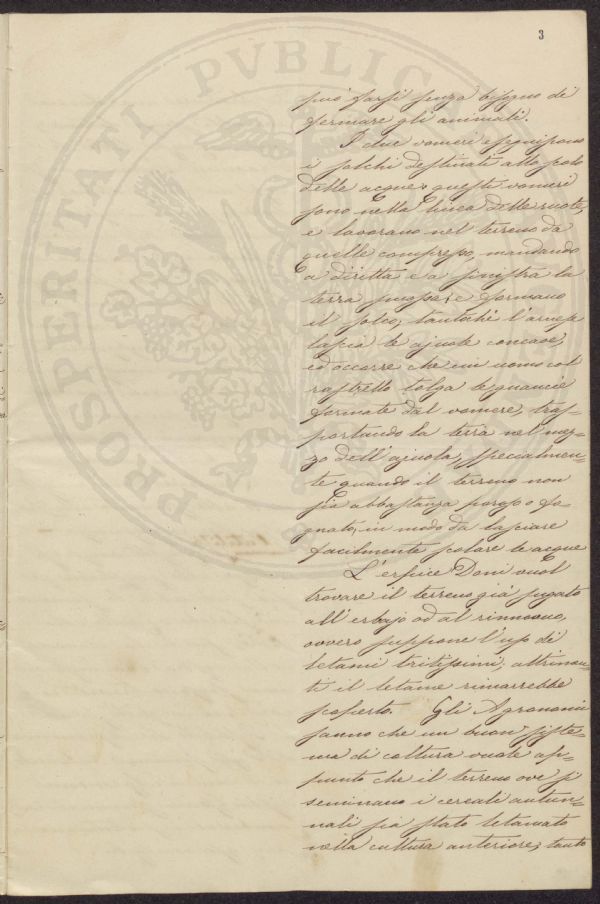 3
può farsi senza bisogno di
fermare gli animali.
I due vomeri eseguiscono
i solchi destinati allo scolo
delle acque; questi vomeri
sono nella linea delle ruote,
e lavorano nel terreno da
quelle compresso, mandando
a diritta e a sinistra la
terra smossa; e formano
il solco, tantochè l'arnese
lascia le ajuole concave,
ed occorre che un uomo col
rastrello tolga le guancie
formate dal vomere, tras=
portando la terra nel mez=
zo dell'ajuola, specialmen=
te quando il terreno non
sia abbastanza poroso o fo=
gnato, in modo da lasciare
facilmente scolare le acque
L'erpice Doni vuol
trovare il terreno già purgato
all'erbajo od al rinnuovo,
ovvero suppone l'uso di
letami tritissimi; altrimen=
ti il letame rimarrebbe
scoperto. Gli Agronomi
sanno che un buon siste=
ma di coltura vuole ap=
punto che il terreno ove si
seminano i cereali autun=
nali sia stato letamato
nella cultura anteriore; tanto
PROSPERITATI PVBLIC